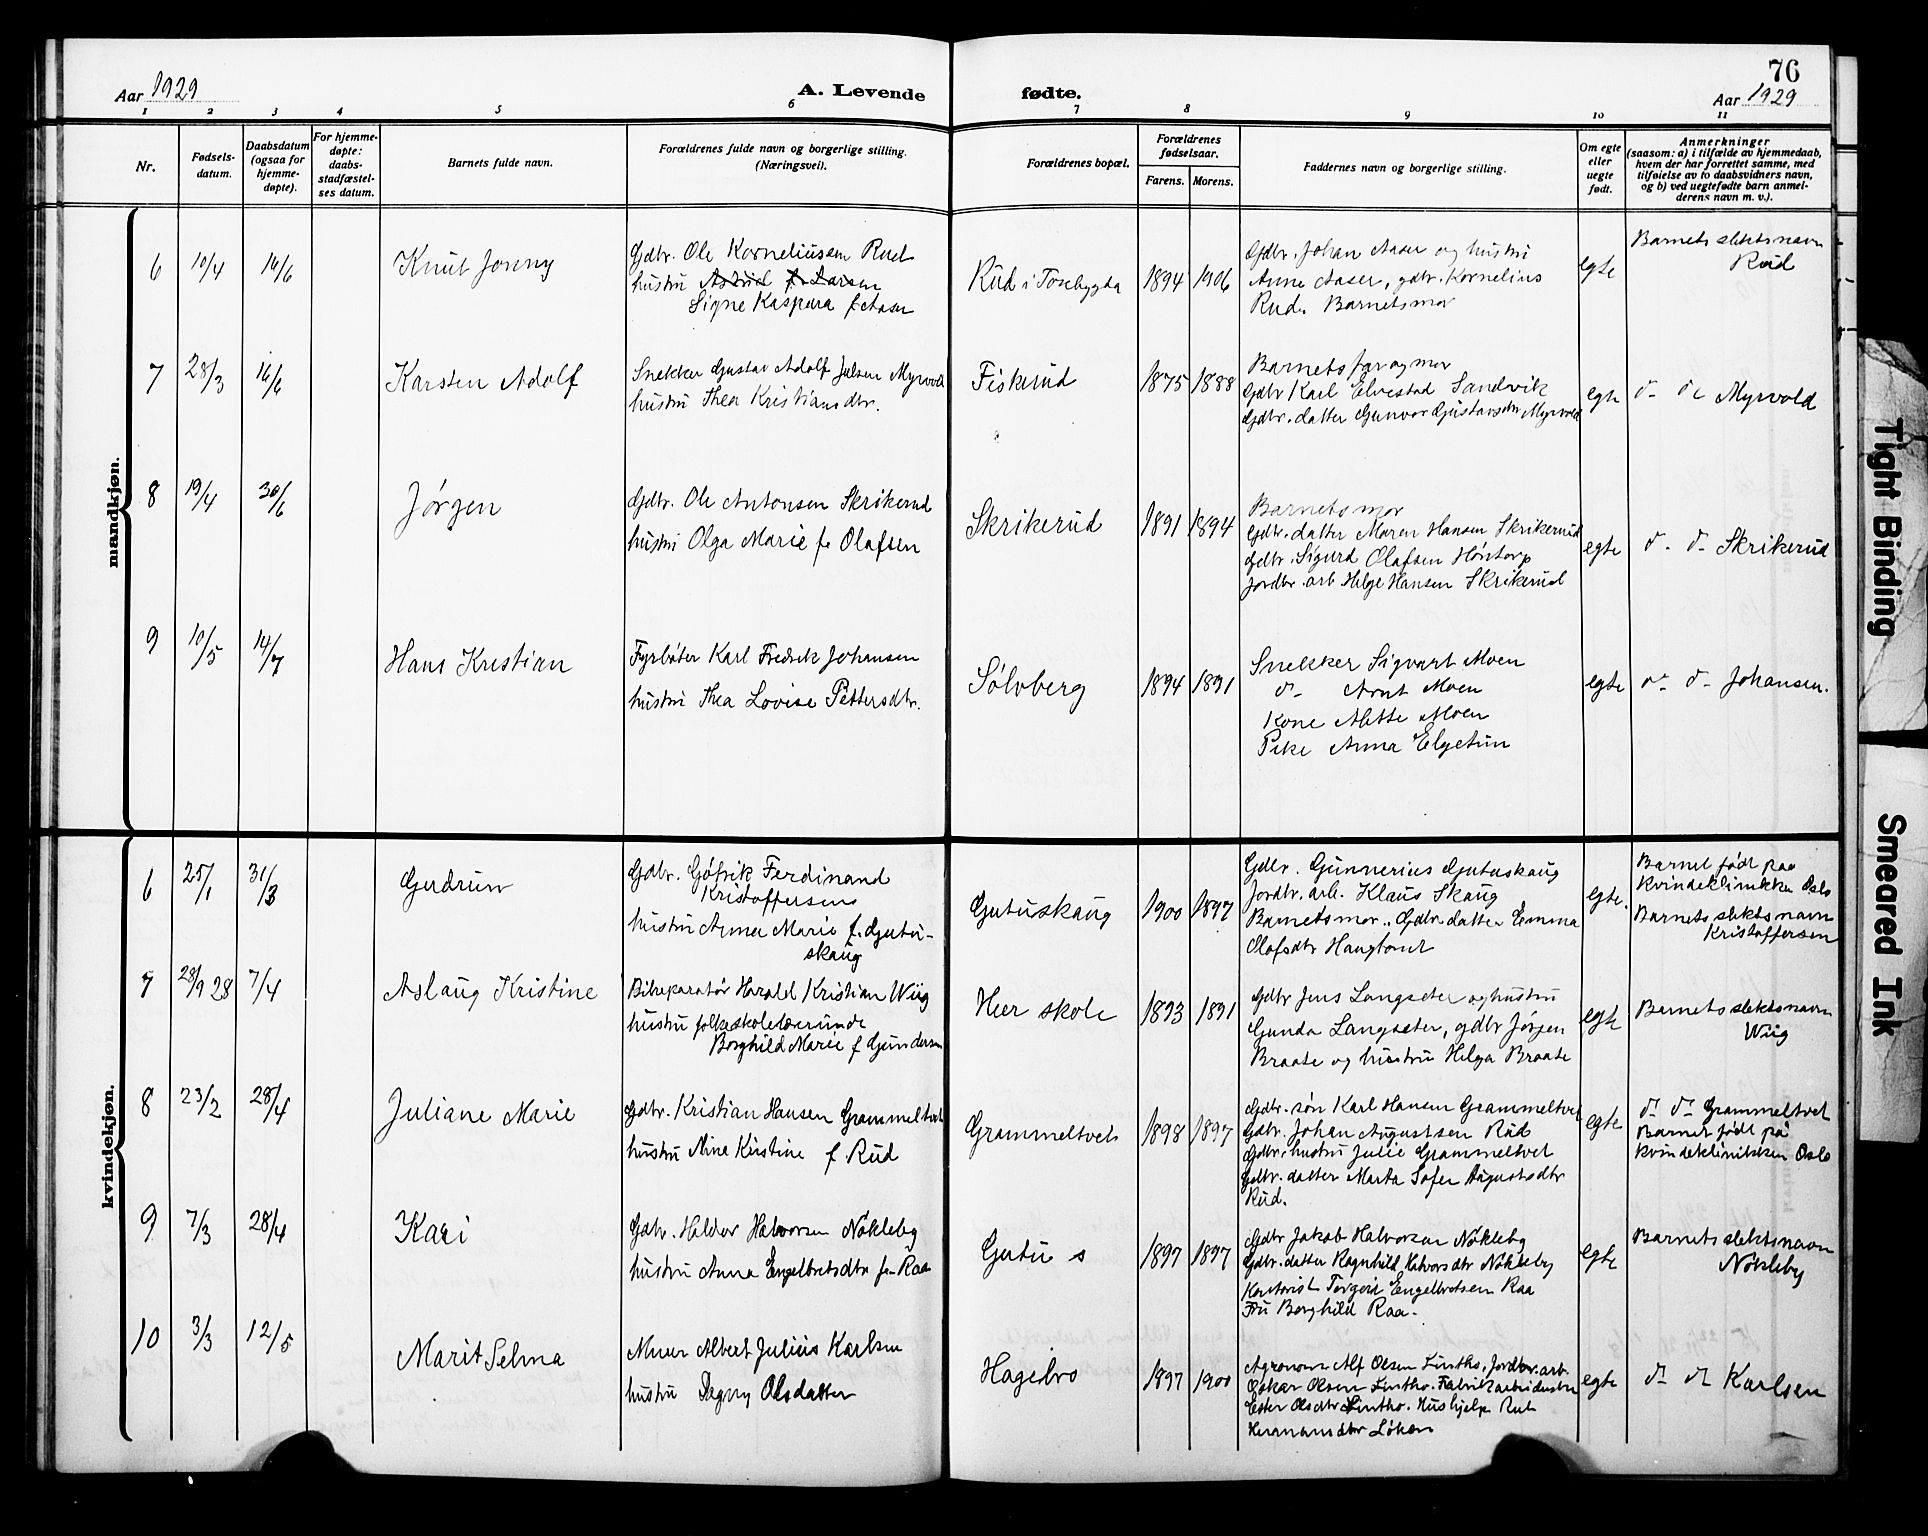 76
Aar 1929
A. Levende fødte.
Aar 1929
1 2 3 4 5 6 7 8 9 10 11
Nr.
Fødsels-
datum.
Daabsdatum
(ogsaa for
hjemme-
døpte).
For hjemme-
døpte:
daabs-
stadfæstel-
ses datum.
Barnets fulde navn.
Forældrenes fulde navn og borgerlige stilling.
(Næringsvei).
Forældrenes bopæl.
Forældrenes
fødselsaar.
Farens. Morens.
Faddernes navn og borgerlige stilling.
Om egte
eller
uegte
født.
Anmerkninger
(saasom: a) i tilfælde av hjemmedaab,
hvem der har forrettet samme, med
tilføielse av to daabsvidners navn,
og b) ved uegtefødte barn anmel-
derens navn m. v.).
mandkjøn.
6 10/4 16/6
Knut Jonny
Gdbr. Ole Korneliussen Rud
hustru Astrid f. Larsen
Signe Kaspara f Aaser
Rud i Tosebygda
1894 1906
Gdbr. Johan Aaser og hustru
Anne Aaser, gdbr. Kornelius
Rud. Barnets mor
egte
Barnets slektsnavn
Rud
7 28/3 16/6
Karsten Adolf
Snekker Gustav Adolf Julsen Myrvold
hustru Thea Kristiansdtr.
Fiskerud
1875 1888
Barnets far og mor
Gdbr Karl Elvestad Sandvik
Gdbr. datter Gunvor Gustavsdtr Myrvold
egte
d- de Myrvold
8 19/4 30/6
Jørgen
Gdbr. Ole Antonsen Skrikerud
hustru Olga Marie f. Olafsen
Skrikerud
1891 1894
Barnets mor
Gdbr. datter Maren Hansen Skrikerud
gdbr. Sigurd Olafsen Høntorp
Jordbr. arb Helge Hansen Skrikerud
egte
d- d- Skrikerud
9 10/5 14/7
Hans Kristian
Fyrbøter Karl Fredrik Johansen
hustru Thea Lovise Pettersdtr.
Sølvberg
1894 1891
Snekker Sigvart Moen
d- Arnt Moen
Kone Mette Moen
Pike Anna Elgetun
egte
d- d- Johansen.
kvindekjøn.
6 25/1 31/3
Gudrun
Gdbr. Gøfrik Ferdinand
Kristoffersens
hustru Anna Marie f. Gutu-
skaug
Gutuskaug
1900 1897
Gdbr. Gunnerius Gutuskaug
Jordbr. arb. Klaus Skaug
Barnets mor.. Gdbr. datter Emma
Olafsdtr Haugtomt
egte.
Barnet født paa
Kvindeklinikken Oslo
Barnets slektsnavn
Kristoffersen
7 28/9 28 7/4
Aslaug Kristine
Bilreparatør Harald Kristian Wiig
hustru folkeskolelærerinde
Borghild Marie f Gundersen
Heer skole
1893 1891
Gdbr Jens Langseter og hustru
Gunda Langseter, gdbr Jørgen
Braate og hustru Helga Braate
egte
Barnets slektsnavn
Wiig
8 23/2 28/4
Juliane Marie
Gdbr. Kristian Hansen Grammeltvet
hustru Nina Kristine f Rud
Grammeltvet
1898 1897
Gdbr. søn Karl Hansen Grammeltvet
Gdbr. Johan Augustsen Rud
Gdbr. hustru Julie Grammeltvet
Gdbr. datter Marta Sofie Augustsdtr
Rud.
egte
d- d- Grammeltvet
Barnet født på
Kvindeklinikken Oslo
9 7/3 28/4
Kari
Gdbr. Haldor Halvorsen Nökleby
hustru Anna Engelbretsdtr f. Raa
Gutu s
1897 1897
Gdbr Jakob Halvorsen Nökleby
Gdbr. datter Ragnhild Halvorsdtr Nökleby
Kontorist Torgeir Engelbretsen Raa
Fru Borghild Raa.
egte
Barnets slektsnavn
Nökleby
10 3/3 12/5
Marit Selma
Murer Albert Julius Karlsen
hustru Dagny Olsdatter
Hagebro
1897 1900
Agronom Alf Olsen Lintho, Jordbr. arb.
Oskar Olsen Lintho. Fabrikarbeiderske
Ester Olsdtr Lintho. Hushjelp Rut
Hermansdtr Løken
egte
d- de Karlsen
Tight Binding
Smeared Ink